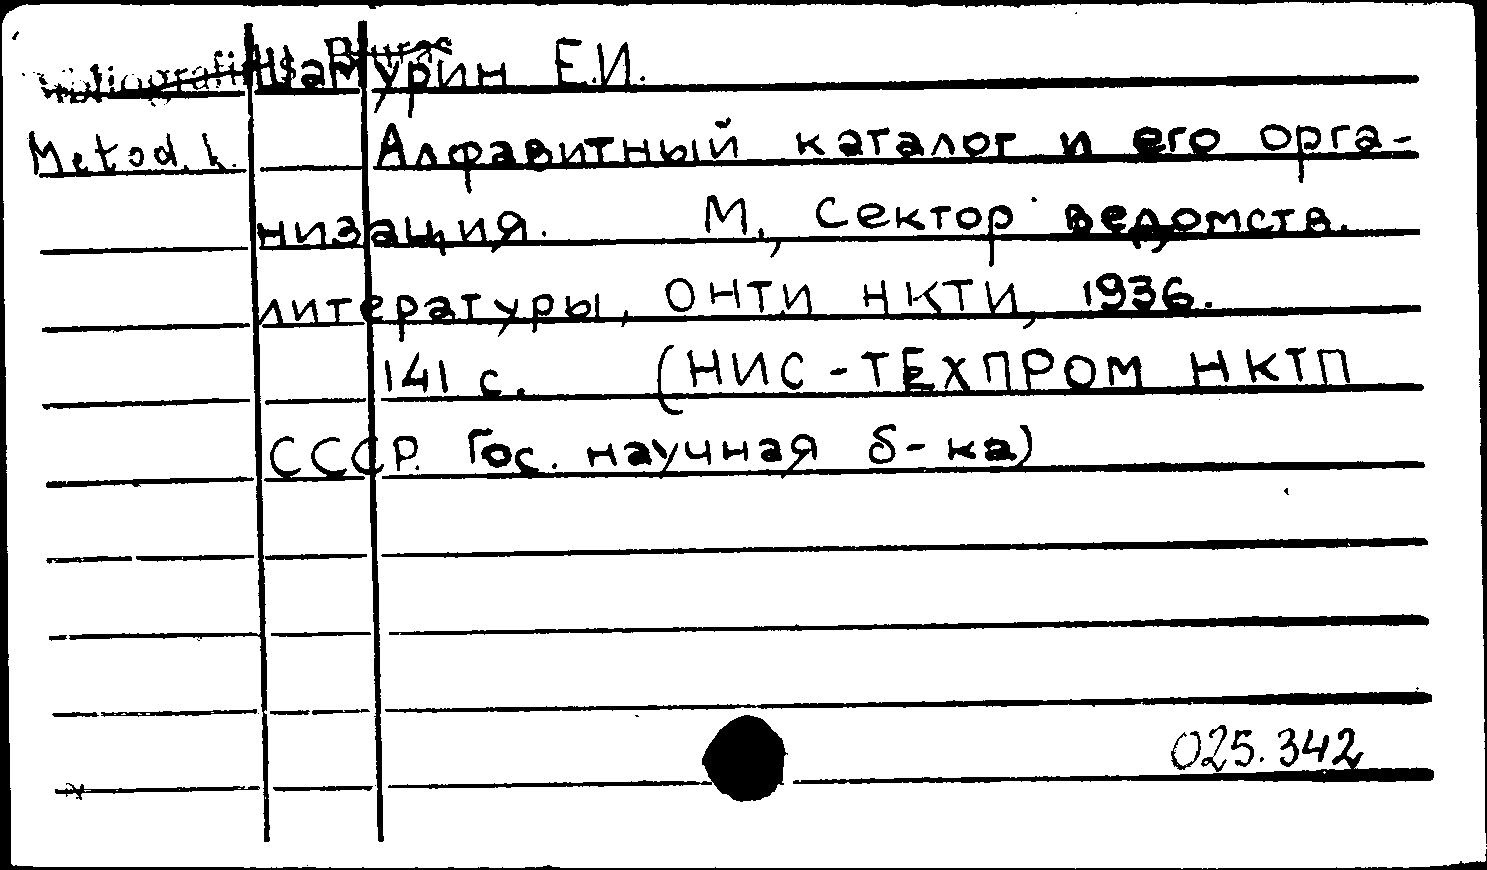 Шамурин Е.И.
Metod. k. Алфавитный каталог и его орга-
низация. М., Сектор ведомств.
литературы, ОНТИ НКТИ, 1936.
141 с. (НИС-ТЕХПРОМ НКТП
СССР. Гос. научная б-ка)
025.342